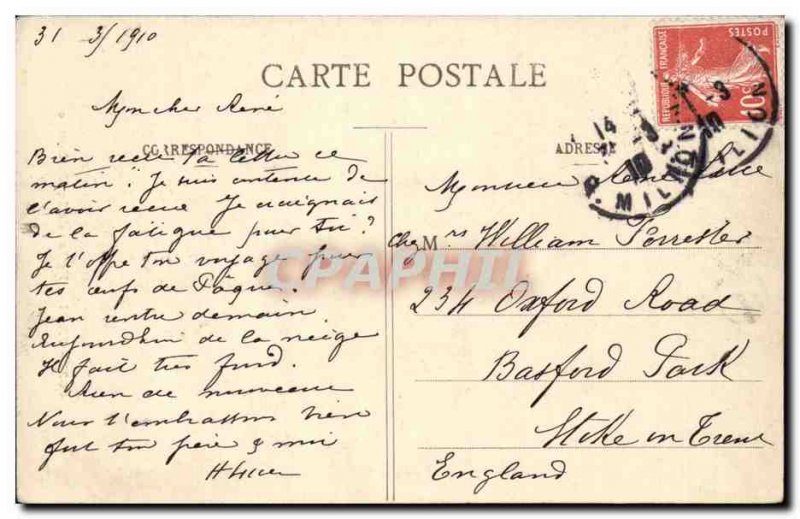 31 3/1910
CARTE POSTALE
Mon cher René
CORRESPONDANCE
Bien reçu ta lettre ce
matin. Je suis contente de
l'avoir reçue Je craignais
de la fatigue pour toi?
Je t'offre ton voyage pour
tes œufs de Pâque.
Jean rentre demain.
Aujourdhui de la neige
Il fait très froid.
Rien de nouveau
Nous t'embrassons bien
fort ton père & moi
ADRESSE
Monsieur René
chez Mrs William Forrester
234 Oxford Road
Basford Park
Stoke on Trent
England
REPUBLIQUE FRANÇAISE
POSTES
10c
14
MILLON
CPAPHIL